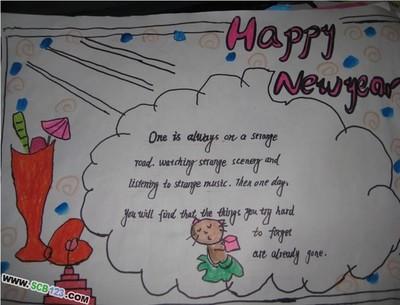 Happy
New year
One is always on a strange
road, watching strange scenery and
listening to strange music. Then one day,
You will find that the things you try hard
to forget
are already gone.
www.SCB123.COM